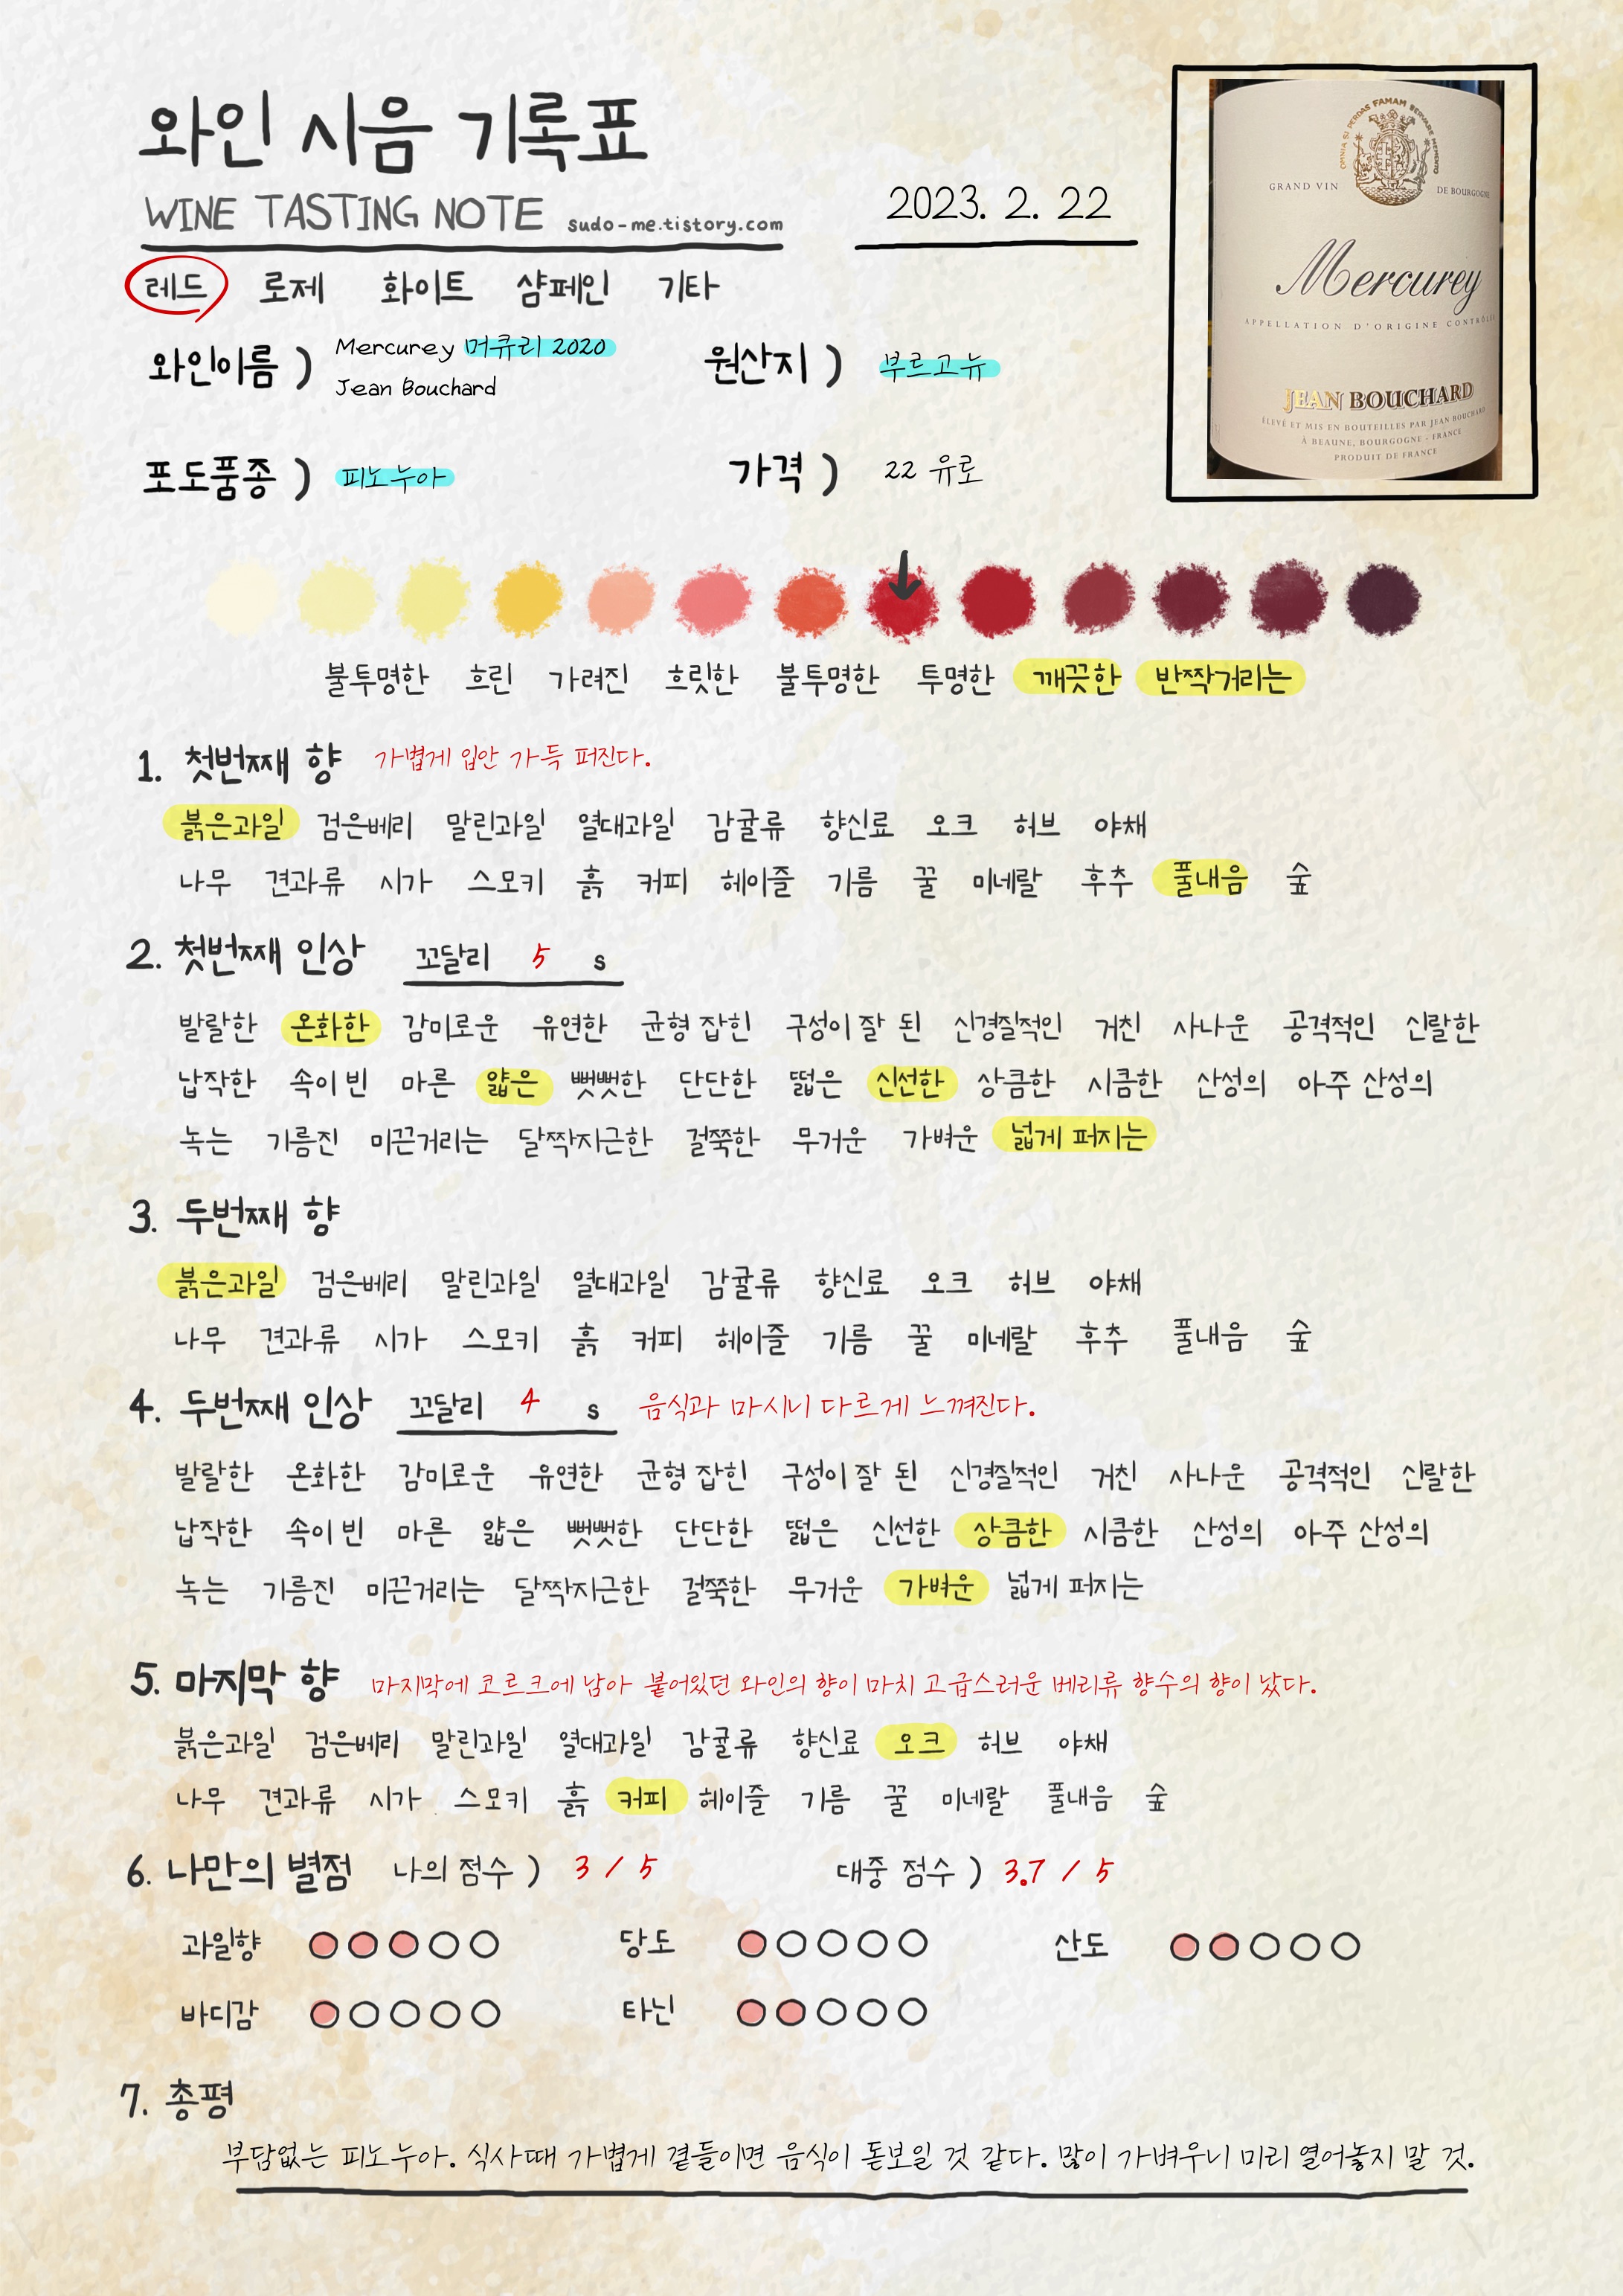 와인 시음 기록표
WINE TASTING NOTE sudo-me.tistory.com
2023. 2. 22
OMNIA SI PERDAS FAMAM SERVARE MEMENTO
GRAND VIN DE BOURGOGNE
Mercurey
APPELLATION D'ORIGINE CONTRÔLÉE
JEAN BOUCHARD
ÉLEVÉ ET MIS EN BOUTEILLES PAR JEAN BOUCHARD
À BEAUNE, BOURGOGNE - FRANCE
PRODUIT DE FRANCE
레드 로제 화이트 샴페인 기타
와인이름 ) Mercurey 머큐리 2020
Jean Bouchard
원산지 ) 부르고뉴
포도품종 ) 피노누아
가격 ) 22 유로
불투명한 흐린 가려진 흐릿한 불투명한 투명한 깨끗한 반짝거리는
1. 첫번째 향 가볍게 입안 가득 퍼진다.
붉은과일 검은베리 말린과일 열대과일 감귤류 향신료 오크 허브 야채
나무 견과류 시가 스모키 흙 커피 헤이즐 기름 꿀 미네랄 후추 풀내음 숲
2. 첫번째 인상 꼬달리 5 s
발랄한 온화한 감미로운 유연한 균형 잡힌 구성이 잘 된 신경질적인 거친 사나운 공격적인 신랄한
납작한 속이 빈 마른 얇은 뻣뻣한 단단한 떫은 신선한 상큼한 시큼한 산성의 아주 산성의
녹는 기름진 미끈거리는 달짝지근한 걸쭉한 무거운 가벼운 넓게 퍼지는
3. 두번째 향
붉은과일 검은베리 말린과일 열대과일 감귤류 향신료 오크 허브 야채
나무 견과류 시가 스모키 흙 커피 헤이즐 기름 꿀 미네랄 후추 풀내음 숲
4. 두번째 인상 꼬달리 4 s 음식과 마시니 다르게 느껴진다.
발랄한 온화한 감미로운 유연한 균형 잡힌 구성이 잘 된 신경질적인 거친 사나운 공격적인 신랄한
납작한 속이 빈 마른 얇은 뻣뻣한 단단한 떫은 신선한 상큼한 시큼한 산성의 아주 산성의
녹는 기름진 미끈거리는 달짝지근한 걸쭉한 무거운 가벼운 넓게 퍼지는
5. 마지막 향 마지막에 코르크에 남아 붙어있던 와인의 향이 마치 고급스러운 베리류 향수의 향이 났다.
붉은과일 검은베리 말린과일 열대과일 감귤류 향신료 오크 허브 야채
나무 견과류 시가 스모키 흙 커피 헤이즐 기름 꿀 미네랄 풀내음 숲
6. 나만의 별점 나의 점수 ) 3 / 5 대중 점수 ) 3.7 / 5
과일향 당도 산도
바디감 타닌
7. 총평
부담없는 피노누아. 식사때 가볍게 곁들이면 음식이 돋보일 것 같다. 많이 가벼우니 미리 열어놓지 말 것.